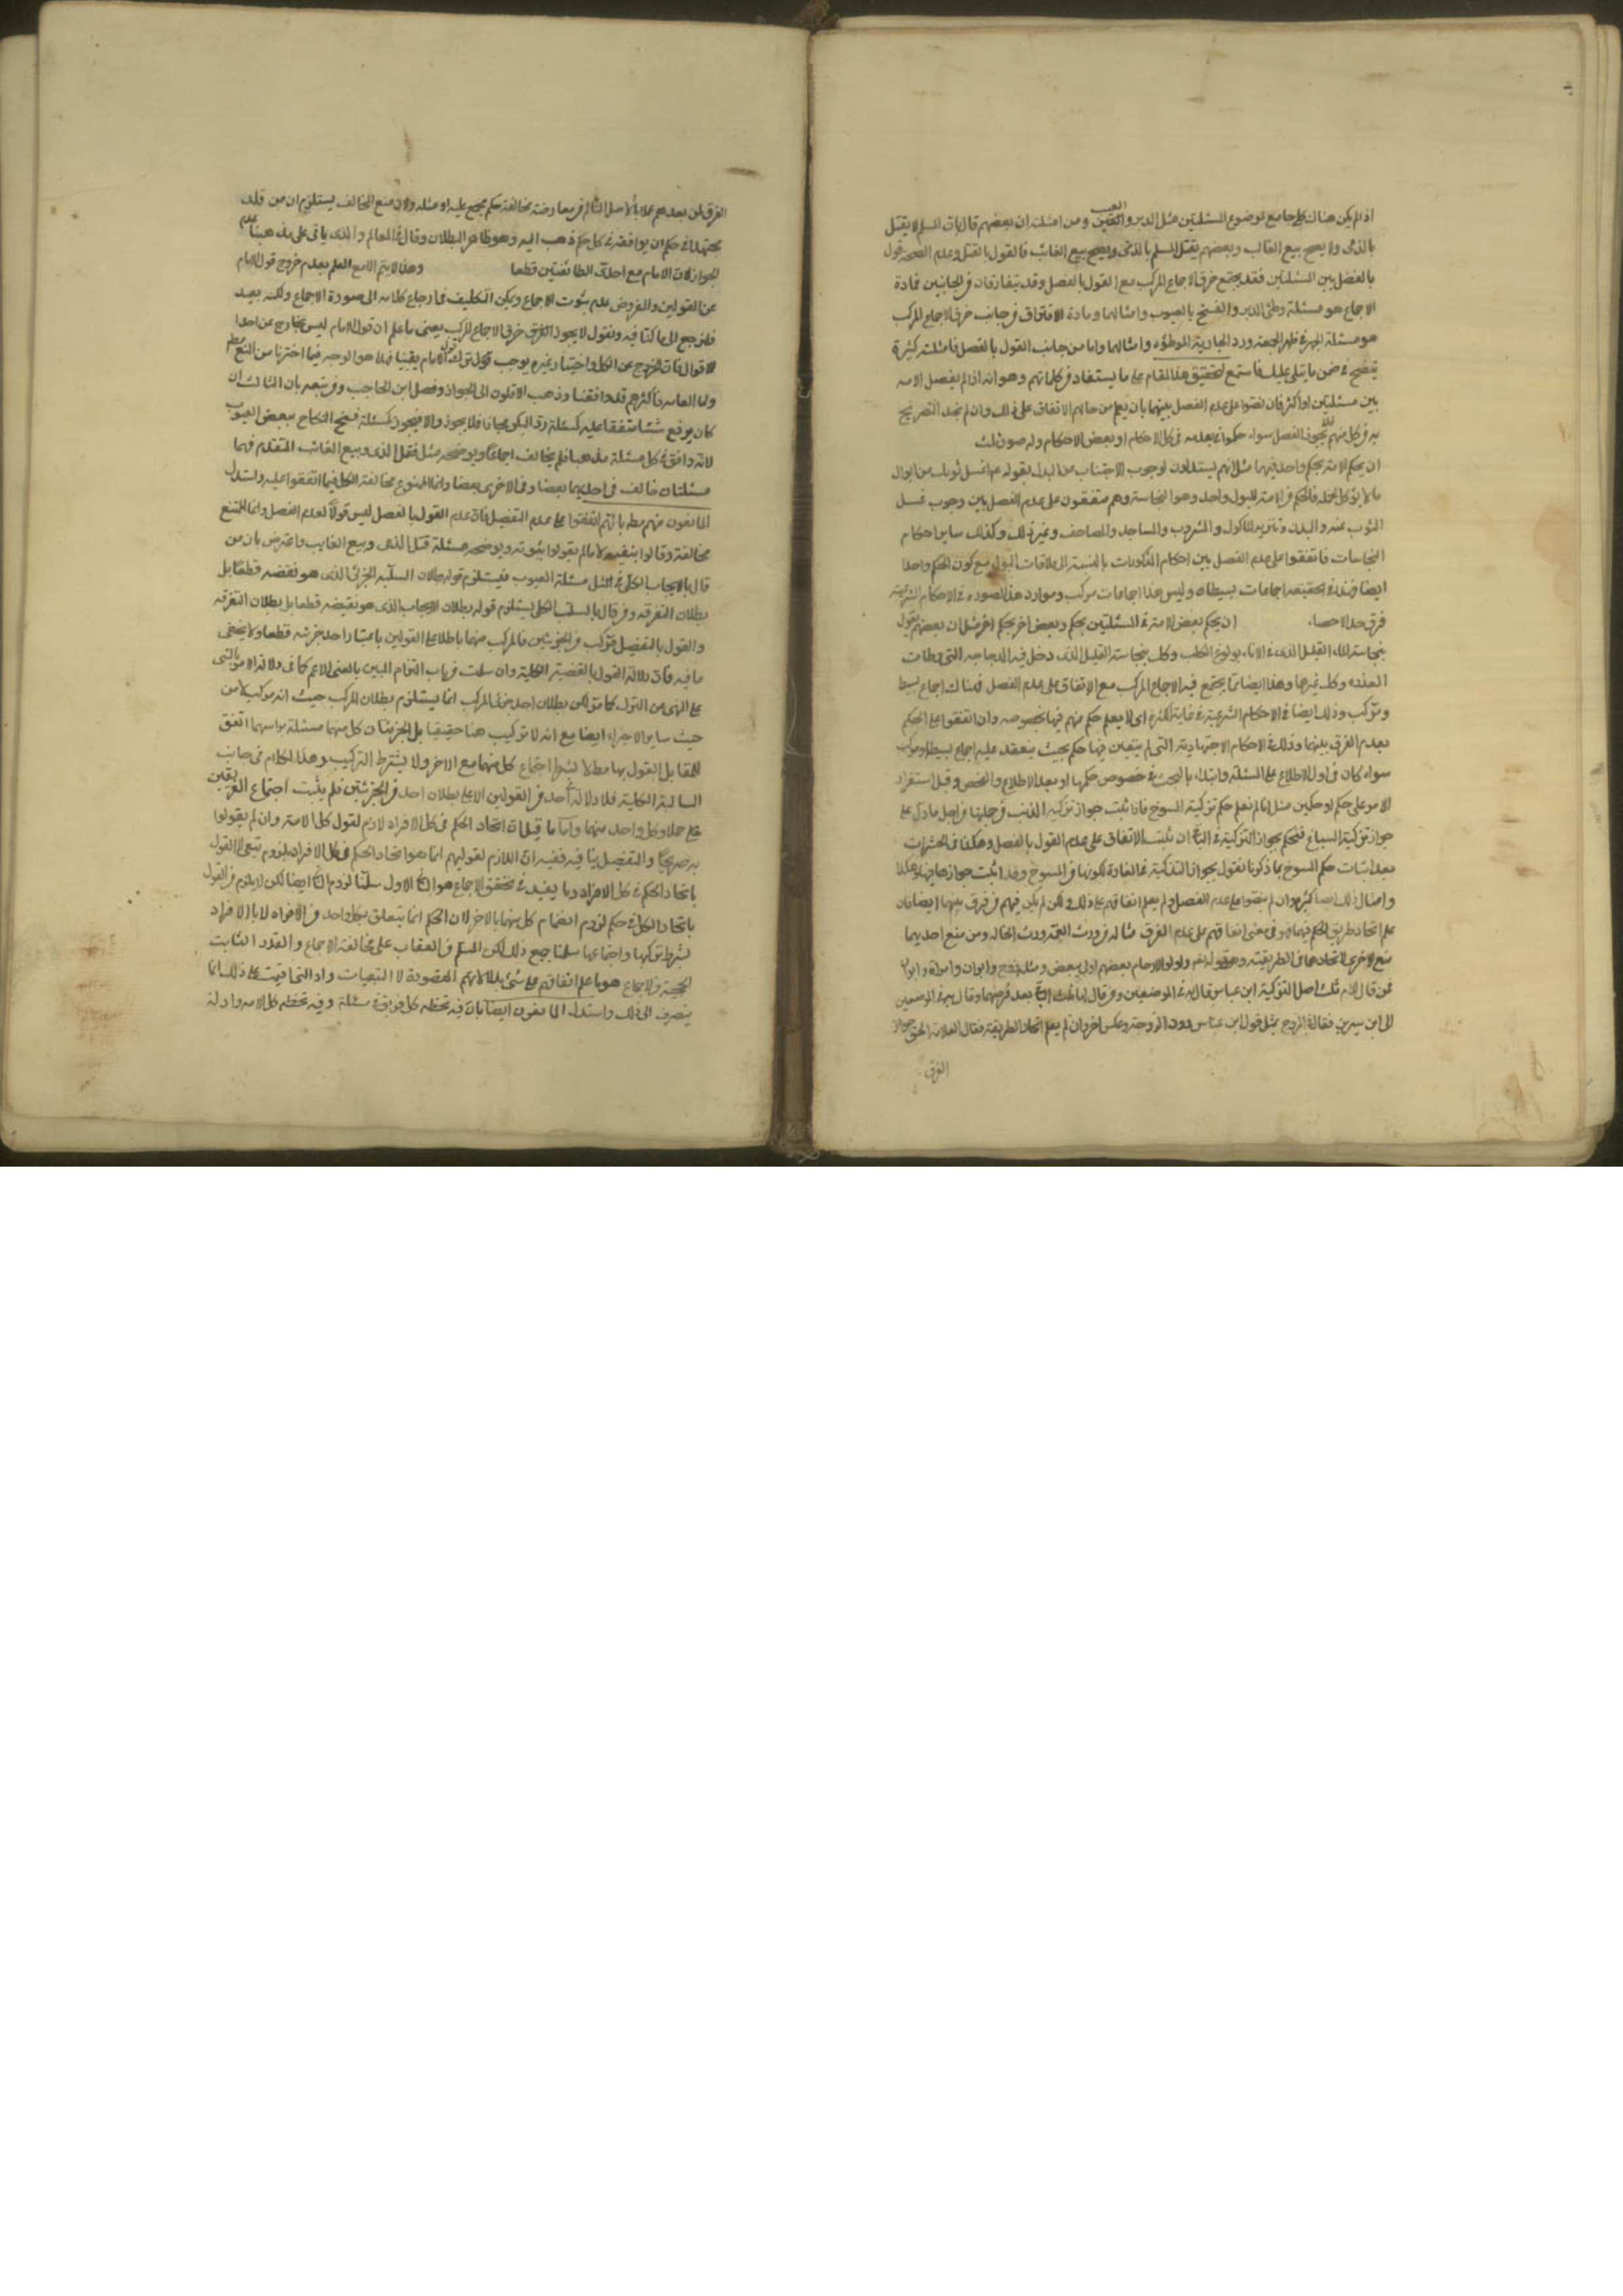 اذا لم يكن هناك كلى جامع لموضوع المسئلتين مثل الدبر والعيب ومن امثلته ان بعضهم قال بان المسلم لا يقتل
بالذمى ولا يصح بيع الغائب وبعضهم يقتل المسلم بالذمى ويصح بيع الغائب فالقول بالقتل وعدم الصحة قول
بالفصل بين المسئلتين فقد يجتمع خرق الاجماع المركب مع القول بالفصل وقد يتفارقان فى الجانبين فمادة
الاجماع هو مسئلة وطئ الدبر والفسخ بالعيوب وامثالهما ومادة الافتراق فى جانب خرق الاجماع المركب
هو مسئلة الجهر فى ظهر الجمعة ورد الجارية الموطوءه وامثالهما واما من جانب القول بالفصل فامثلته كثيرة
يتضح فى ضمن ما يتلى عليك فاستمع لتحقيق هذا المقام على ما يستفاد من كلماتهم وهو انه اذا لم يفصل الامه
بين مسئلتين او اكثر فان نصوا على عدم الفصل بينهما بان يعلم من حالهم الاتفاق على ذلك وان لم نجد التصريح
به من كل منهم فلا يجوز الفصل سواء حكموا بعدمه فى كل الاحكام او بعض الاحكام وله صور ثلث
ان يحكم الامة بحكم واحد فيهما مثل انهم يستدلون لوجوب الاجتناب عن البول بقوله ع اغسل ثوبك من ابوال
ما لا يؤكل لحمه فالحكم من الامة للبول واحد وهو النجاسة وهم متفقون على عدم الفصل بين وجوب غسل
الثوب عنه والبدن وتنزيه المأكول والمشروب والمساجد والمصاحف وغير ذلك وكذلك ساير احكام
النجاسات فاتفقوا على عدم الفصل بين احكام المذكورات بالنسبة الى ملاقات البول مع كون الحكم واحدا
ايضا فهذه فى الحقيقة اجماعات بسيطة وليس هذا اجماعات مركب وموارد هذه الصورة فى الاحكام الشرعية
فوق حد الاحصاء ان يحكم بعض الامة فى المسئلتين بحكم وبعض اخر بحكم اخر مثل ان بعضهم يقول
بنجاسة الماء القليل الذى فى الاناء بولوغ الكلب وكل بنجاسة القليل الذى دخل فيه الدجاجة التى وطأت
العذره وكل غيرها وهذا ايضا مما يجتمع فيه الاجماع المركب مع الاتفاق على عدم الفصل فهناك اجماع بسيط
ومركب وذلك ايضا فى الاحكام الشرعية فى غاية الكثرة ان لا يعلم حكم منهم فيها بخصوصه وان اتفقوا على الحكم
بعدم الفرق بينهما وذلك فى الاحكام الاجتهادية التى لم يتعين فيها حكم بحيث ينعقد عليه اجماع بسيط او مركب
سواء كان فى اول الاطلاع على المسئلة وابتداء بالبحث فى خصوص حكمها او بعد الاطلاع والفحص وقبل استقرار
الامر على حكم او حكمين مثل انا لم نعلم حكم تزكية المسوخ فاذا ثبت جواز تزكية الذئب فى جملتها من اجل ما دل على
جواز تزكية السباع فنحكم بجواز التزكية فى الباقى ان ثبت الاتفاق على عدم القول بالفصل وهكذا فى الحشرات
بعد اثبات حكم المسوخ بما ذكرنا نقول بجواز التذكية فى الفارة لكونها من المسوخ وقد اثبت جوازها فيها وهكذا
وامثال ذلك ايضا كثيرة وان لم ينصوا على عدم الفصل ولم يعلم اتفاقهم على ذلك ولكن لم يكن فيهم من فرق بينهما ايضا فان
علم اتحاد طريق الحكم فيهما فهو فى معنى اتفاقهم على عدم الفرق مثاله من ورث العمة ورث الخالة ومن منع احديهما
منع الاخرى لاتحادهما فى الطريقة وهو قوله تعم واولو الارحام بعضهم اولى ببعض ومثل زوج وابوان وامراة وابوان
فمن قال للام ثلث اصل التركة ابن عباس قال به فى الموضعين ومن قال لها ثلث الباقى بعد فرضهما وقال به فى الموضعين
الى ابن سيرين فقال فى الزوج بمثل قول ابن عباس دون الزوجة وعكس اخر وان لم يعلم اتحاد الطريقة فقال العلامة الحق جواز
الفرق
الفرق لمن بعدهم عملا بالاصل السالم عن معارضة مخالفة حكم مجمع عليه او مثله ولان منع المخالف يستلزم ان من قلد
مجتهدا فى حكم ان يوافقه فى كل حكم ذهب اليه وهو ظاهر البطلان وقال فى المعالم والذى ياتى على مذهبنا عدم
الجواز لان الامام مع احدى الطائفتين قطعا وهذا لا يتم الا مع العلم بعدم خروج قول الامام
عن القولين والمفروض عدم ثبوت الاجماع ويمكن التكليف فى ارجاع كلامه الى صورة الاجماع ولكنه بعيد
فلنرجع الى ما كنا فيه ونقول لا يجوز الفرق خرق الاجماع المركب يعنى ما علم ان قول الامام ليس بخارج عن احدا
الاقوال فان الخروج عن الكل واختيار غيره يوجب ترك قول الامام يقينا فهذا هو الوجه فيما اخترنا من المنع مطم
واما العامه فاكثرهم قد وافقنا وذهب الاقلون الى الجواز وفصل ابن الحاجب ومن تبعه بان الثالث ان
كان يرفع شئا متفقا عليه كمسئلة رد البكر مجانا فلا يجوز والا فيجوز كمسئلة فسخ النكاح ببعض العيوب
لانه وافق فى كل مسئلة مذهبا فلم يخالف اجماعا ويوضحه مثل قتل الذمى وبيع الغائب المتقدم فهما
مسئلتان خالف فى احديهما بعضا وفى الاخرى بعضا وانما الممنوع مخالفة الكل فيما اتفقوا عليه واستدل
المانعون منهم مطم بانهم اتفقوا على عدم التفصيل فان عدم القول بالفصل ليس قولا بعدم الفصل وانما الممتنع
مخالفة وقالوا بنفيه لا ما لم يقولوا بثبوته ويوضحه مسئلة قتل الذمى وبيع الغايب واعترض بان من
قال بالايجاب الكلى فى مثل مسئلة العيوب فيستلزم قوله بطلان السلبية الجزئى الذى هو نقيضه قطعا بل
بطلان التفرقه ومن قال بالسلب الكلى يستلزم قوله بطلان الايجاب الذى هو نقيضه قطعا بل بطلان التفرقه
والقول بالتفصيل مركب من الجزئيين فالمركب منهما باطلا على القولين باعتبار احد جزئيه قطعا ولا يخفى
ما فيه فان دلالة القول بالقضية الكلية وان سلمت من باب التزام البين بالمعنى الاعم كما فى دلالة الامر بالشى
على النهى عن الترك كما مر لكن بطلان احد جزئى المركب انما يستلزم بطلان المركب حيث انه مركب لا من
حيث ساير الاجزاء ايضا مع انه لا تركيب هنا حقيقيا بل الجزئيان كل منهما مسئلة براسهما اتفق
للمقابل القول بها مطم لا بشرط اجتماع كل منهما مع الاخر ولا يشترط التركيب وهذا الكلام فى جانب
السالبة الكلية فلا دلالة لاحد من القولين الا على بطلان احد من الجزئيتين فلم يثبت اجتماع الفريقين
على جملا وكل واحد منهما واما ما قيل ان اتحاد الحكم فى كل الافراد لازم لقول كل الامة وان لم يقولوا
به صريحا والتفصيل ينافيه ففيه ان اللازم لقوليهم انما هو اتحاد الحكم فى كل الافراد بلزوم تبعى لا القول
باتحاد الحكم فى كل الافراد وما يفيد فى تحقق الاجماع هو الثانى لا الاول سلمنا لزوم الثانى ايضا لكن لا يلزم من القول
باتحاد الكل فى حكم لزوم انضمام كل منهما بالاخر لان الحكم انما يتعلق بكل واحد من الافراد لا بالافراد
بشرط تركبها واجتماعها سلمنا جميع ذلك لكن المسلم من العقاب على مخالفة الاجماع والقدر الثابت
الحجية من الاجماع هو ما علم اتفاقهم على شئ بدلالاتهم المقصودة لا التبعيات واد التحاقيت على ذلك انما
ينصرف الى ذلك واستدل المانعون ايضا بان فيه تخطئه كل فريق فى مسئلة وفيه تخطئه كل الامه وادلة